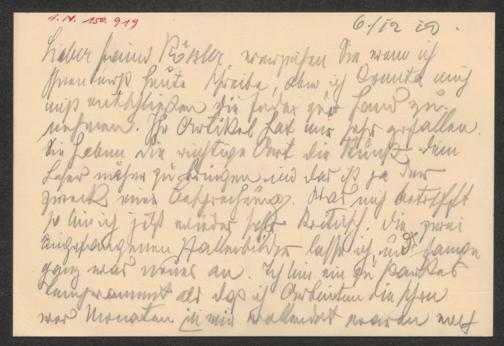 I.N. 150.919
6./12 19.
Lieber Freund Rössler, verzeihen Sie wenn ich
Ihnen erst heute schreibe, aber ich konnte mich
nicht entschließen die Feder zur Hand zu
nehmen. Ihr Artikel hat mir sehr gefallen.
Sie haben die richtige Art die Kunst dem
Leser näher zu bringen und das ist ja der
Zweck einer Besprechung. Was mich betrifft
so bin ich jetzt wieder sehr kritisch. Die zwei
angefangenen lasse ich und fange
ganz was neues an. Ich bin ein zu starkes
als daß ich Arbeiten die schon
vor Monaten in mir vollendet waren erst